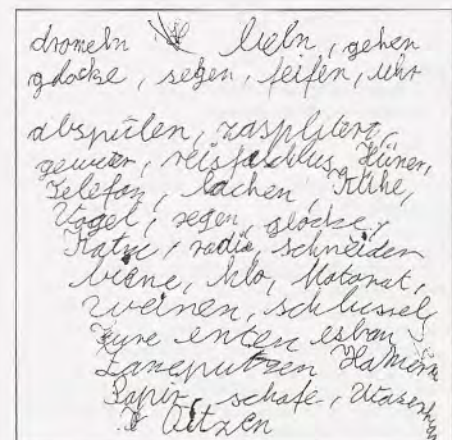 dromeln lieln, gehen
glocke, segen, feifen, uhr
abspülen, zasplitert,
geweter, reisfaschlus, Hüner,
Telefon, lachen, Kühe,
Vogel, regen, glocke,
Katze, radio, schneiden
biene, klo, Motorrat,
weinen, schlussel,
Türe enten
Zaneputzen Hamern
Papir, schafe,